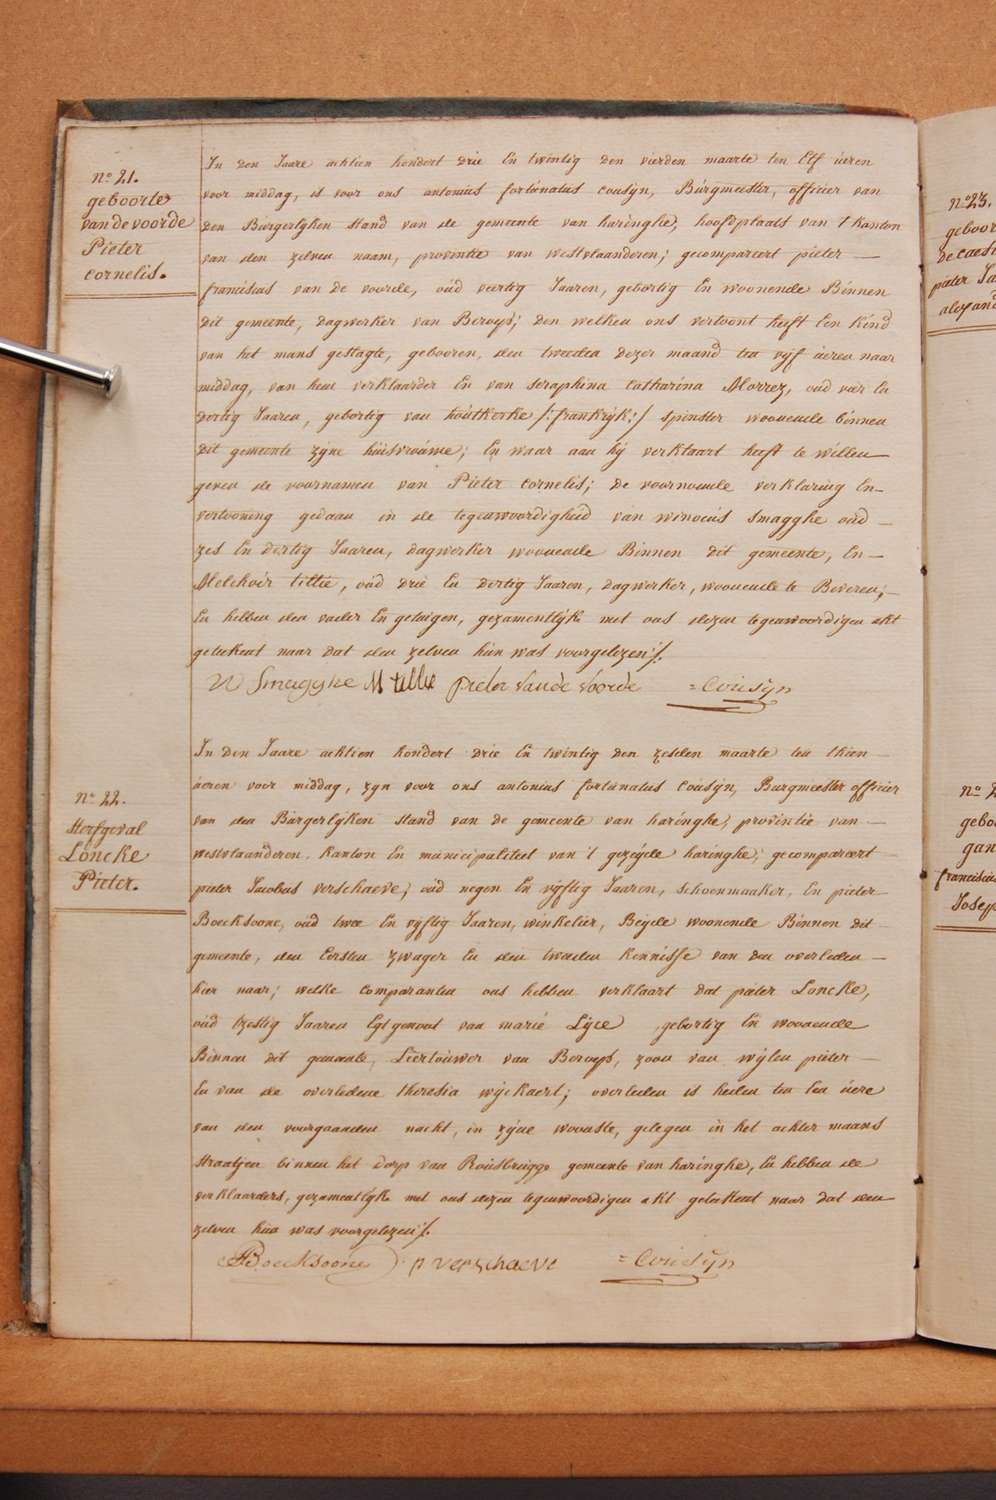 n.º 21.
geboorte
van de voorde
Pieter
cornelis.
In den Jaare achtien hondert drie En twintig den vierden maarte ten Elf üeren
voor middag, is voor ons antonius fortúnatus cousÿn, Búrgmeester, officier van
den Búrgerlÿken stand van de gemeente van haringhe, hoofdplaats van 't kanton
van den zelven naam, provintie van westvlaanderen; gecompareert pieter
franciscus van de voorde, oúd veertig Jaaren, gebortig En woonende Binnen
dit gemeente, dagwerker van Beroep; den welken ons vertoont heeft Een Kind
van het mans geslagte, gebooren, den tweeden dezer maand ten vÿf úeren naar
middag, van hem verklaarder En van seraphina catharina Morrez, oud vier En
dertig Jaaren, gebortig van houtkerke /:frankrÿk:/ spinster woonende binnen
dit gemeente zÿne húisvroúwe; En waar aan hÿ verklaart heeft te willen
geven de voornamen van Pieter cornelis; de voornoemde verklaring En
vertooning gedaan in de tegenwoordigheid van winocús Smagghe oúd
zes En dertig Jaaren, dagwerker woonende Binnen dit gemeente, En
Melchoir tillie, oúd drie En dertig Jaaren, dagwerker, woonende te Beveren;
En hebben den vader En getuigen, gezamentlÿk met ons dezen tegenwoordigen akt
geteekent naar dat den zelven hún was voorgelezen /.
W Smagghe M tillie pieter Vande Voorde = Cousÿn
n.º 22.
Sterfgeval
Loncke
Pieter.
In den Jaare achtien hondert drie En twintig den zesden maarte ten thien
úeren voor middag, zÿn voor ons antonius fortúnatus cousÿn, Burgmeester officier
van den Búrgerlÿken stand van de gemeente van haringhe, provintie van
westvlaanderen. kanton En múnicipaliteit van 't gezeÿde haringhe; gecompareert
pieter Jacobus verschaeve, oúd negen En vÿftig Jaaren, schoenmaaker, En pieter
Boecksoone, oúd twee En vÿftig Jaaren, winkelier, Beÿde woonende Binnen dit
gemeente, den Eersten zwager En den tweeden kennisse van den overleden
hier naar; welke comparanten ons hebben verklaart dat pieter Loncke,
oúd tzestig Jaaren Egtgenoot van marie Lÿce, gebortig En woonende
Binnen dit gemeente, Leertouwer van Beroep, zoon van wÿlen pieter
En van de overledene theresia wÿckaert; overleden is heden ten Een úere
van den voorgaanden nacht, in zÿne wooniste, gelegen in het achter maans
straatjen binnen het dorp van Roúsbrúgge gemeente van haringhe, En hebben de
verklaarders, gezamentlÿk met ons dezen tegenwoordigen akt geteekent naar dat den
zelven hún was voorgelezen /.
Boecksoone p verschaeve = Cousÿn
n.º 23.
geboor
de caes
pieter Ja
alexand
n.º 2
gebo
gan
franciscus
Josep